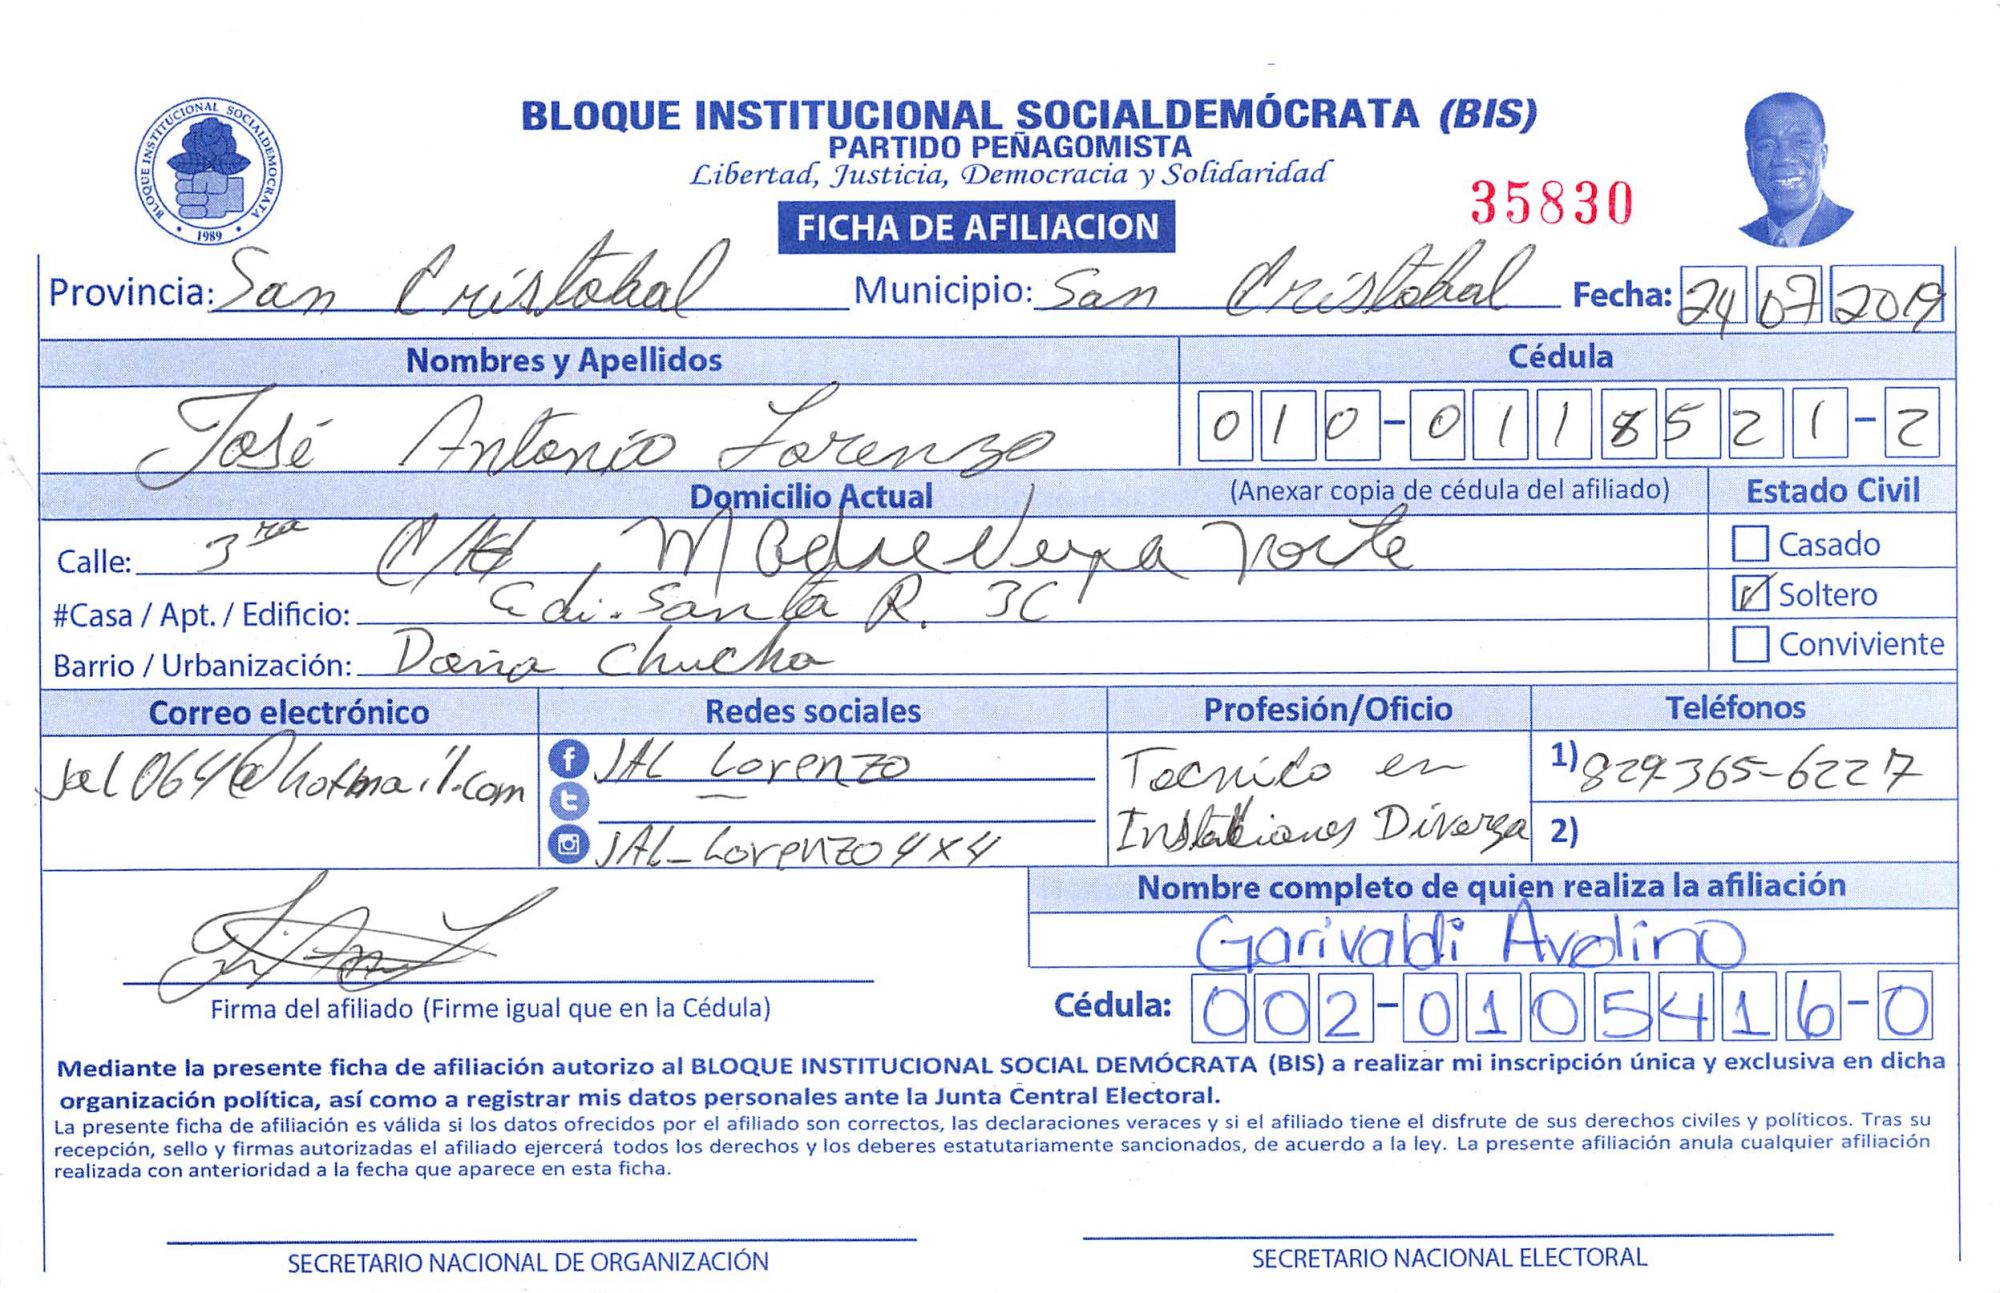 BLOQUE INSTITUCIONAL SOCIALDEMOCRATA
1989
BLOQUE INSTITUCIONAL SOCIALDEMÓCRATA (BIS)
PARTIDO PEÑAGOMISTA
Libertad, Justicia, Democracia y Solidaridad
35830
FICHA DE AFILIACION
Provincia: San Cristobal Municipio: San Cristobal Fecha: 24 07 2019
Nombres y Apellidos Cédula
José Antonio Lorenzo 010-0118521-2
Domicilio Actual (Anexar copia de cédula del afiliado) Estado Civil
Calle: 3ra Madre Vieja Norte Casado
#Casa / Apt. / Edificio: Edi. Santa R. 3C Soltero
Barrio / Urbanización: Doña Chucha Conviviente
Correo electrónico Redes sociales Profesión/Oficio Teléfonos
jal064@hotmail.com JAL Lorenzo Tecnico en 1) 829-365-6227
JAL_Lorenzo4x4 Diversa 2)
Nombre completo de quien realiza la afiliación
Garivaldi Avelino
Firma del afiliado (Firme igual que en la Cédula) Cédula: 002-0105416-0
Mediante la presente ficha de afiliación autorizo al BLOQUE INSTITUCIONAL SOCIAL DEMÓCRATA (BIS) a realizar mi inscripción única y exclusiva en dicha
organización política, así como a registrar mis datos personales ante la Junta Central Electoral.
La presente ficha de afiliación es válida si los datos ofrecidos por el afiliado son correctos, las declaraciones veraces y si el afiliado tiene el disfrute de sus derechos civiles y políticos. Tras su
recepción, sello y firmas autorizadas el afiliado ejercerá todos los derechos y los deberes estatutariamente sancionados, de acuerdo a la ley. La presente afiliación anula cualquier afiliación
realizada con anterioridad a la fecha que aparece en esta ficha.
SECRETARIO NACIONAL DE ORGANIZACIÓN SECRETARIO NACIONAL ELECTORAL